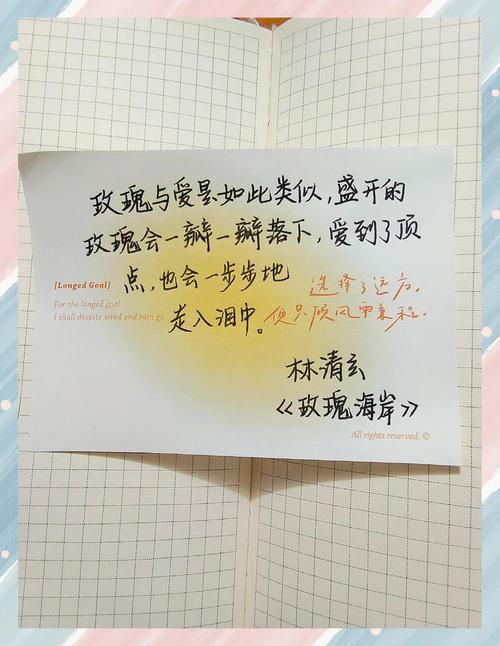 玫瑰与爱是如此类似,盛开的
玫瑰会一瓣一瓣落下,爱到了顶
点,也会一步步地
[Longed Goal]
选择了远方,
For the longed goal
I shall despite wind and rain go
走入泪中。
便只顾风雨兼程.
林清玄
《玫瑰海岸》
All rights reserved. ©